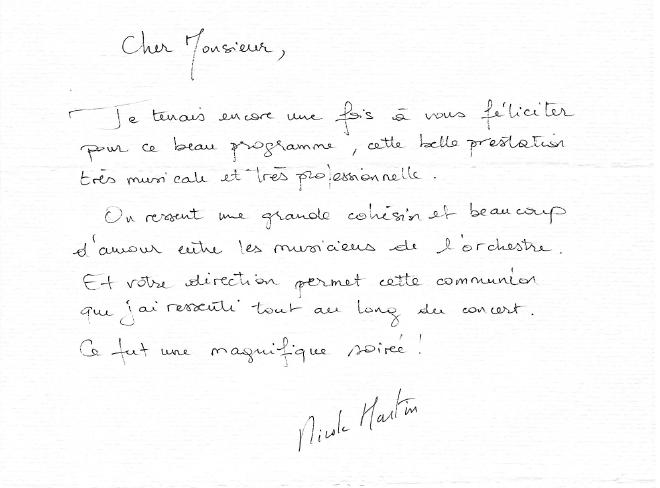 Cher Monsieur,
Je tenais encore une fois à vous féliciter
pour ce beau programme, cette belle prestation
très musicale et très professionnelle.
On ressent une grande cohésion et beaucoup
d'amour entre les musiciens de l'orchestre.
Et votre direction permet cette communion
que j'ai ressenti tout au long du concert.
Ce fut une magnifique soirée !
Nicole Martin